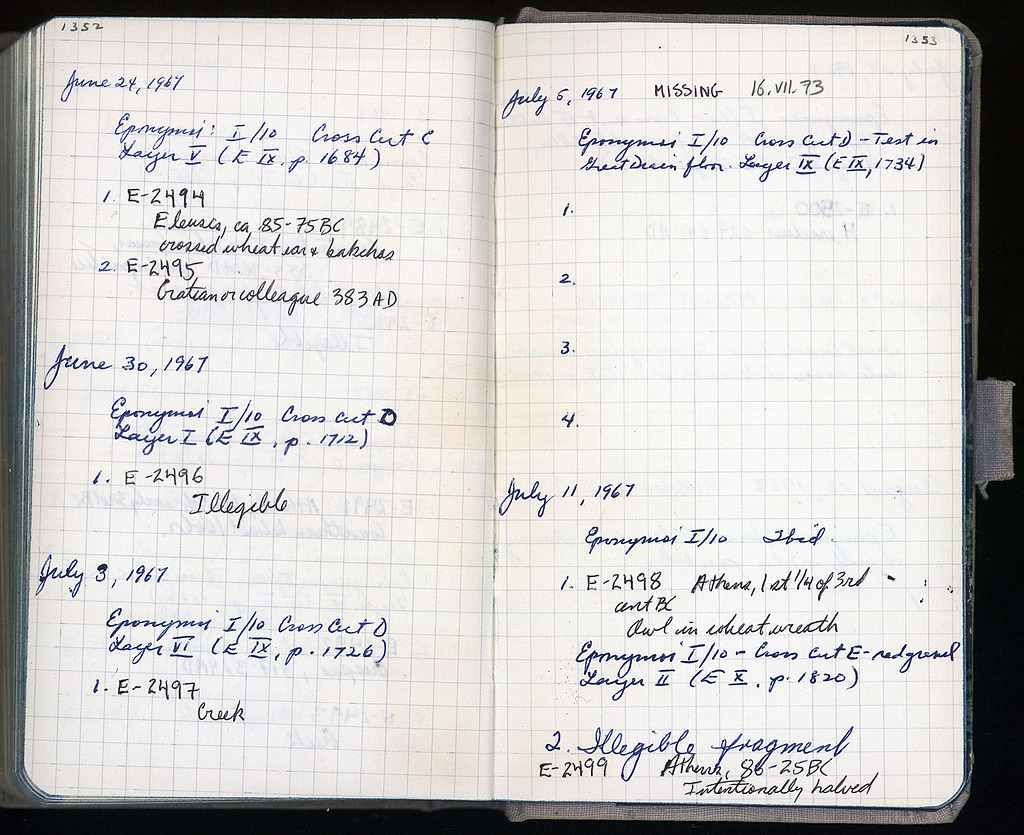 1352
June 24, 1967
Eponymoi: I/10 Cross Cut C
Layer V (E IX, p. 1684)
1. E-2494
Eleusis, ca 85-75BC
crossed wheat ear & bakchos
2. E-2495
Gratian or colleague 383AD
June 30, 1967
Eponymoi I/10 Cross Cut D
Layer I (E IX, p. 1712)
1. E-2496
Illegible
July 3, 1967
Eponymoi I/10 Cross Cut D
Layer VI (E IX, p. 1726)
1. E-2497
Greek
1353
July 6, 1967 MISSING 16.VII.73
Eponymoi I/10 Cross Cut D - Test in
Great Drain floor. Layer IX (E IX, 1734)
1.
2.
3.
4.
July 11, 1967
Eponymoi I/10 Ibid.
1. E-2498 Athens, 1st 1/4 of 3rd
cent BC
Owl in wheat wreath
Eponymoi I/10 - Cross Cut E - red gravel
Layer II (E X, p. 1820)
2. Illegible fragment
E-2499 Athens, 86-25BC
Intentionally halved